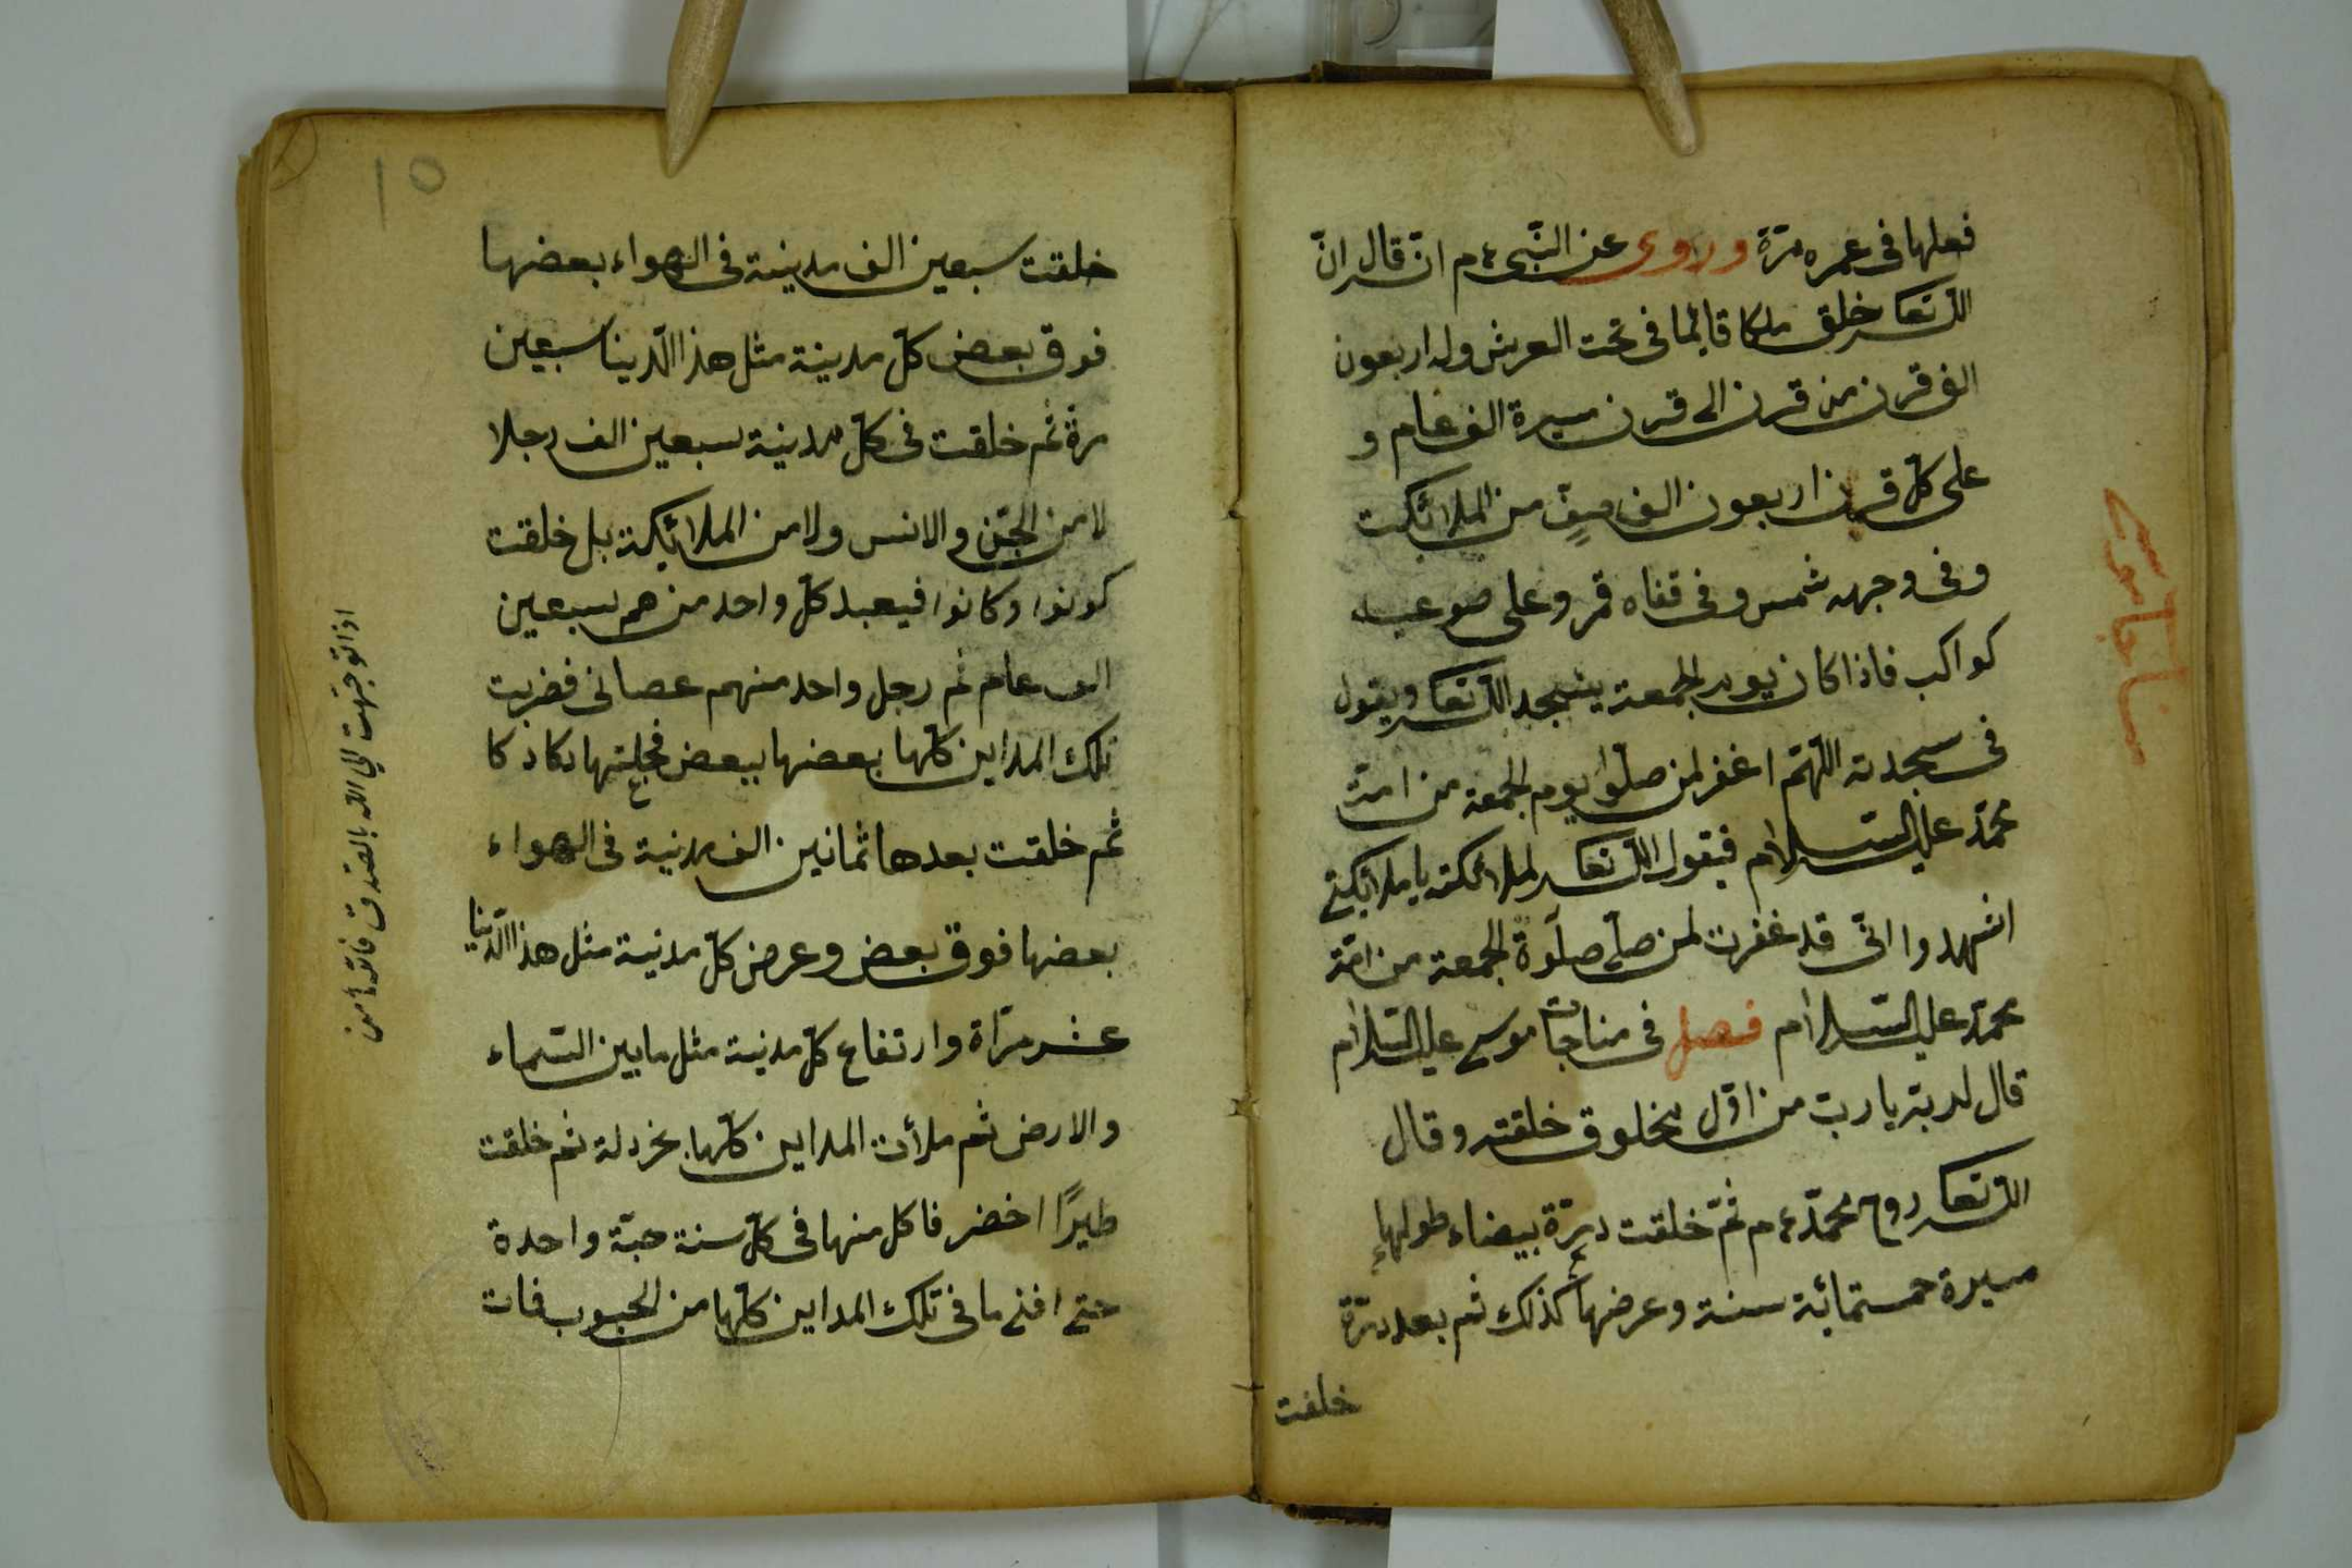 فعلها فى عمره مرّة وروى عن النّبى ءم انّه قال انّ
اللّه تعا خلق ملكا قايما فى تحت العرش وله اربعون
الف قرن من قرن الى قرن مسيرة الف عام و
على كلّ قرن اربعون الف صفٍّ من الملائكت
وفى وجهه شمس وفى قفاه قمر وعلى
كواكب فاذا كان يوم الجمعة يسجد اللّه تعا ويقول
فى سجدته اللّهمّ اغفر لمن صلّوا يوم الجمعة من امّة
محمّد عليه السّلام فيقول اللّه تعا لملائكته يا ملائكتى
اشهدوا انّى قد غفرت لمن صلّى صلوة الجمعة من امّة
محمّد عليه السّلام فصل فى مناجات موسى عليه السّلام
قال لربّه يا ربّ من اوّل مخلوق خلقته وقال
اللّه تعا روح محمّد ءم ثمّ خلقت درّة بيضاء طولها
مسيرة خمستمائة سنة وعرضها كذلك ثم بعد درّة
خلقت
مناجا موسى
١٥
خلقت سبعين الف مدينة فى الهواء بعضها
فوق بعض كلّ مدينة مثل هذا الدّينا سبعين
مرة ثم خلقت فى كلّ مدينة سبعين الف رجلا
لا من الجنّ والانس ولا من الملائكة بل خلقت
كونوا وكانوا فيعبد كلّ واحد من هم سبعين
الف عام ثم رجل واحد منهم عصانى فضربت
تلك المداين كلّها بعضها ببعض فجعلتها دكا دكا
ثم خلقت بعدها ثمانين الف مدنية فى الهواء
بعضها فوق بعض وعرض كلّ مدنية مثل هذا الدّنيا
عشر مرّاة وارتفاع كلّ مدنية مثل ما بين السّماء
والارض ثم ملأت المداين كلّها بخردلة ثم خلقت
طيرًا اخضر فاكل منها فى كلّ سنة حبّة واحدة
حتى افنى ما فى تلك المداين كلّها من الحبوب فمات
اذا توجّهت الى الله بالصّدق فاتوا من